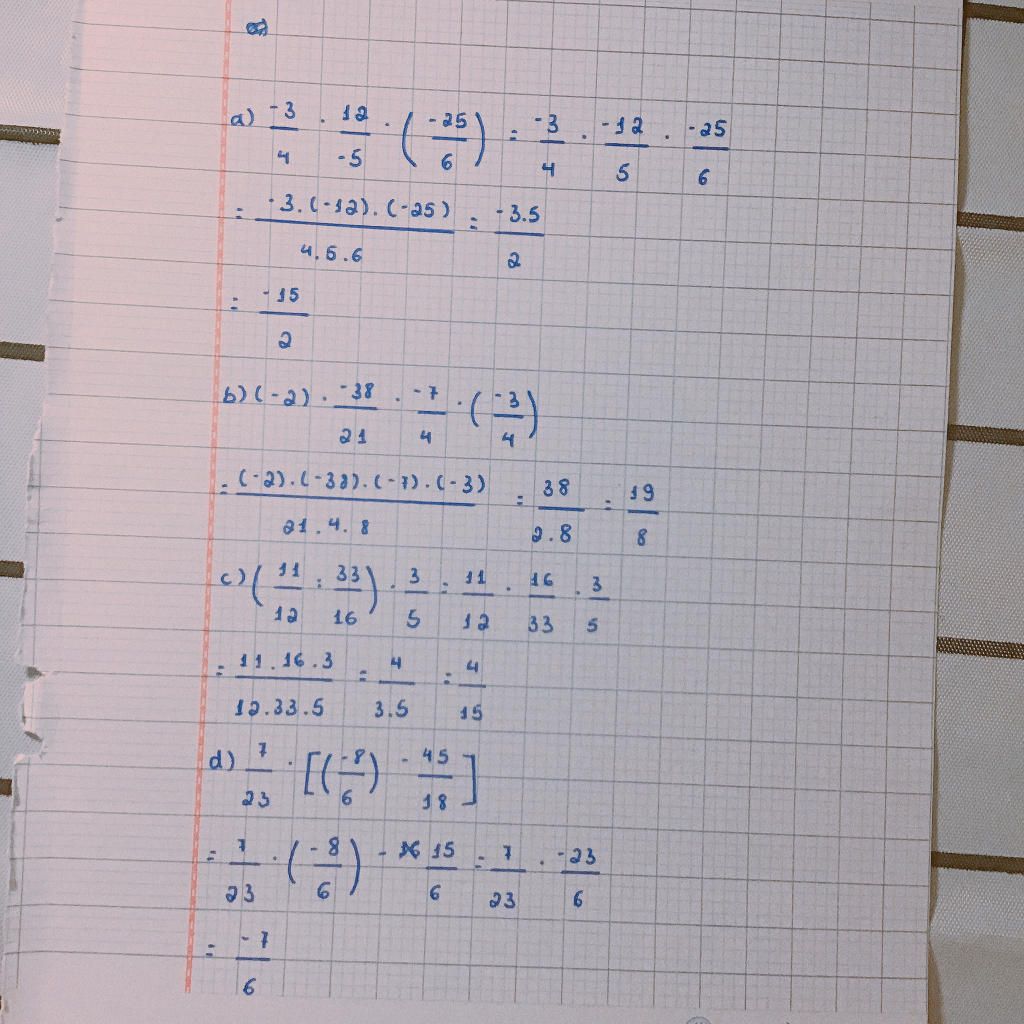 a) -3/4 . 12/-5 . (-25/6) = -3/4 . -12/5 . -25/6
= -3.(-12).(-25)/4.5.6 = -3.5/2
= -15/2
b) (-2) . -38/21 . -7/4 . (-3/4)
= (-2).(-38).(-7).(-3)/21.4.8 = 38/2.8 = 19/8
c) (11/12 : 33/16) . 3/5 = 11/12 . 16/33 . 3/5
= 11.16.3/12.33.5 = 4/3.5 = 4/15
d) 7/23 . [(-8/6) - 45/18]
= 7/23 . (-8/6) - 15/6 = 7/23 . -23/6
= -7/6